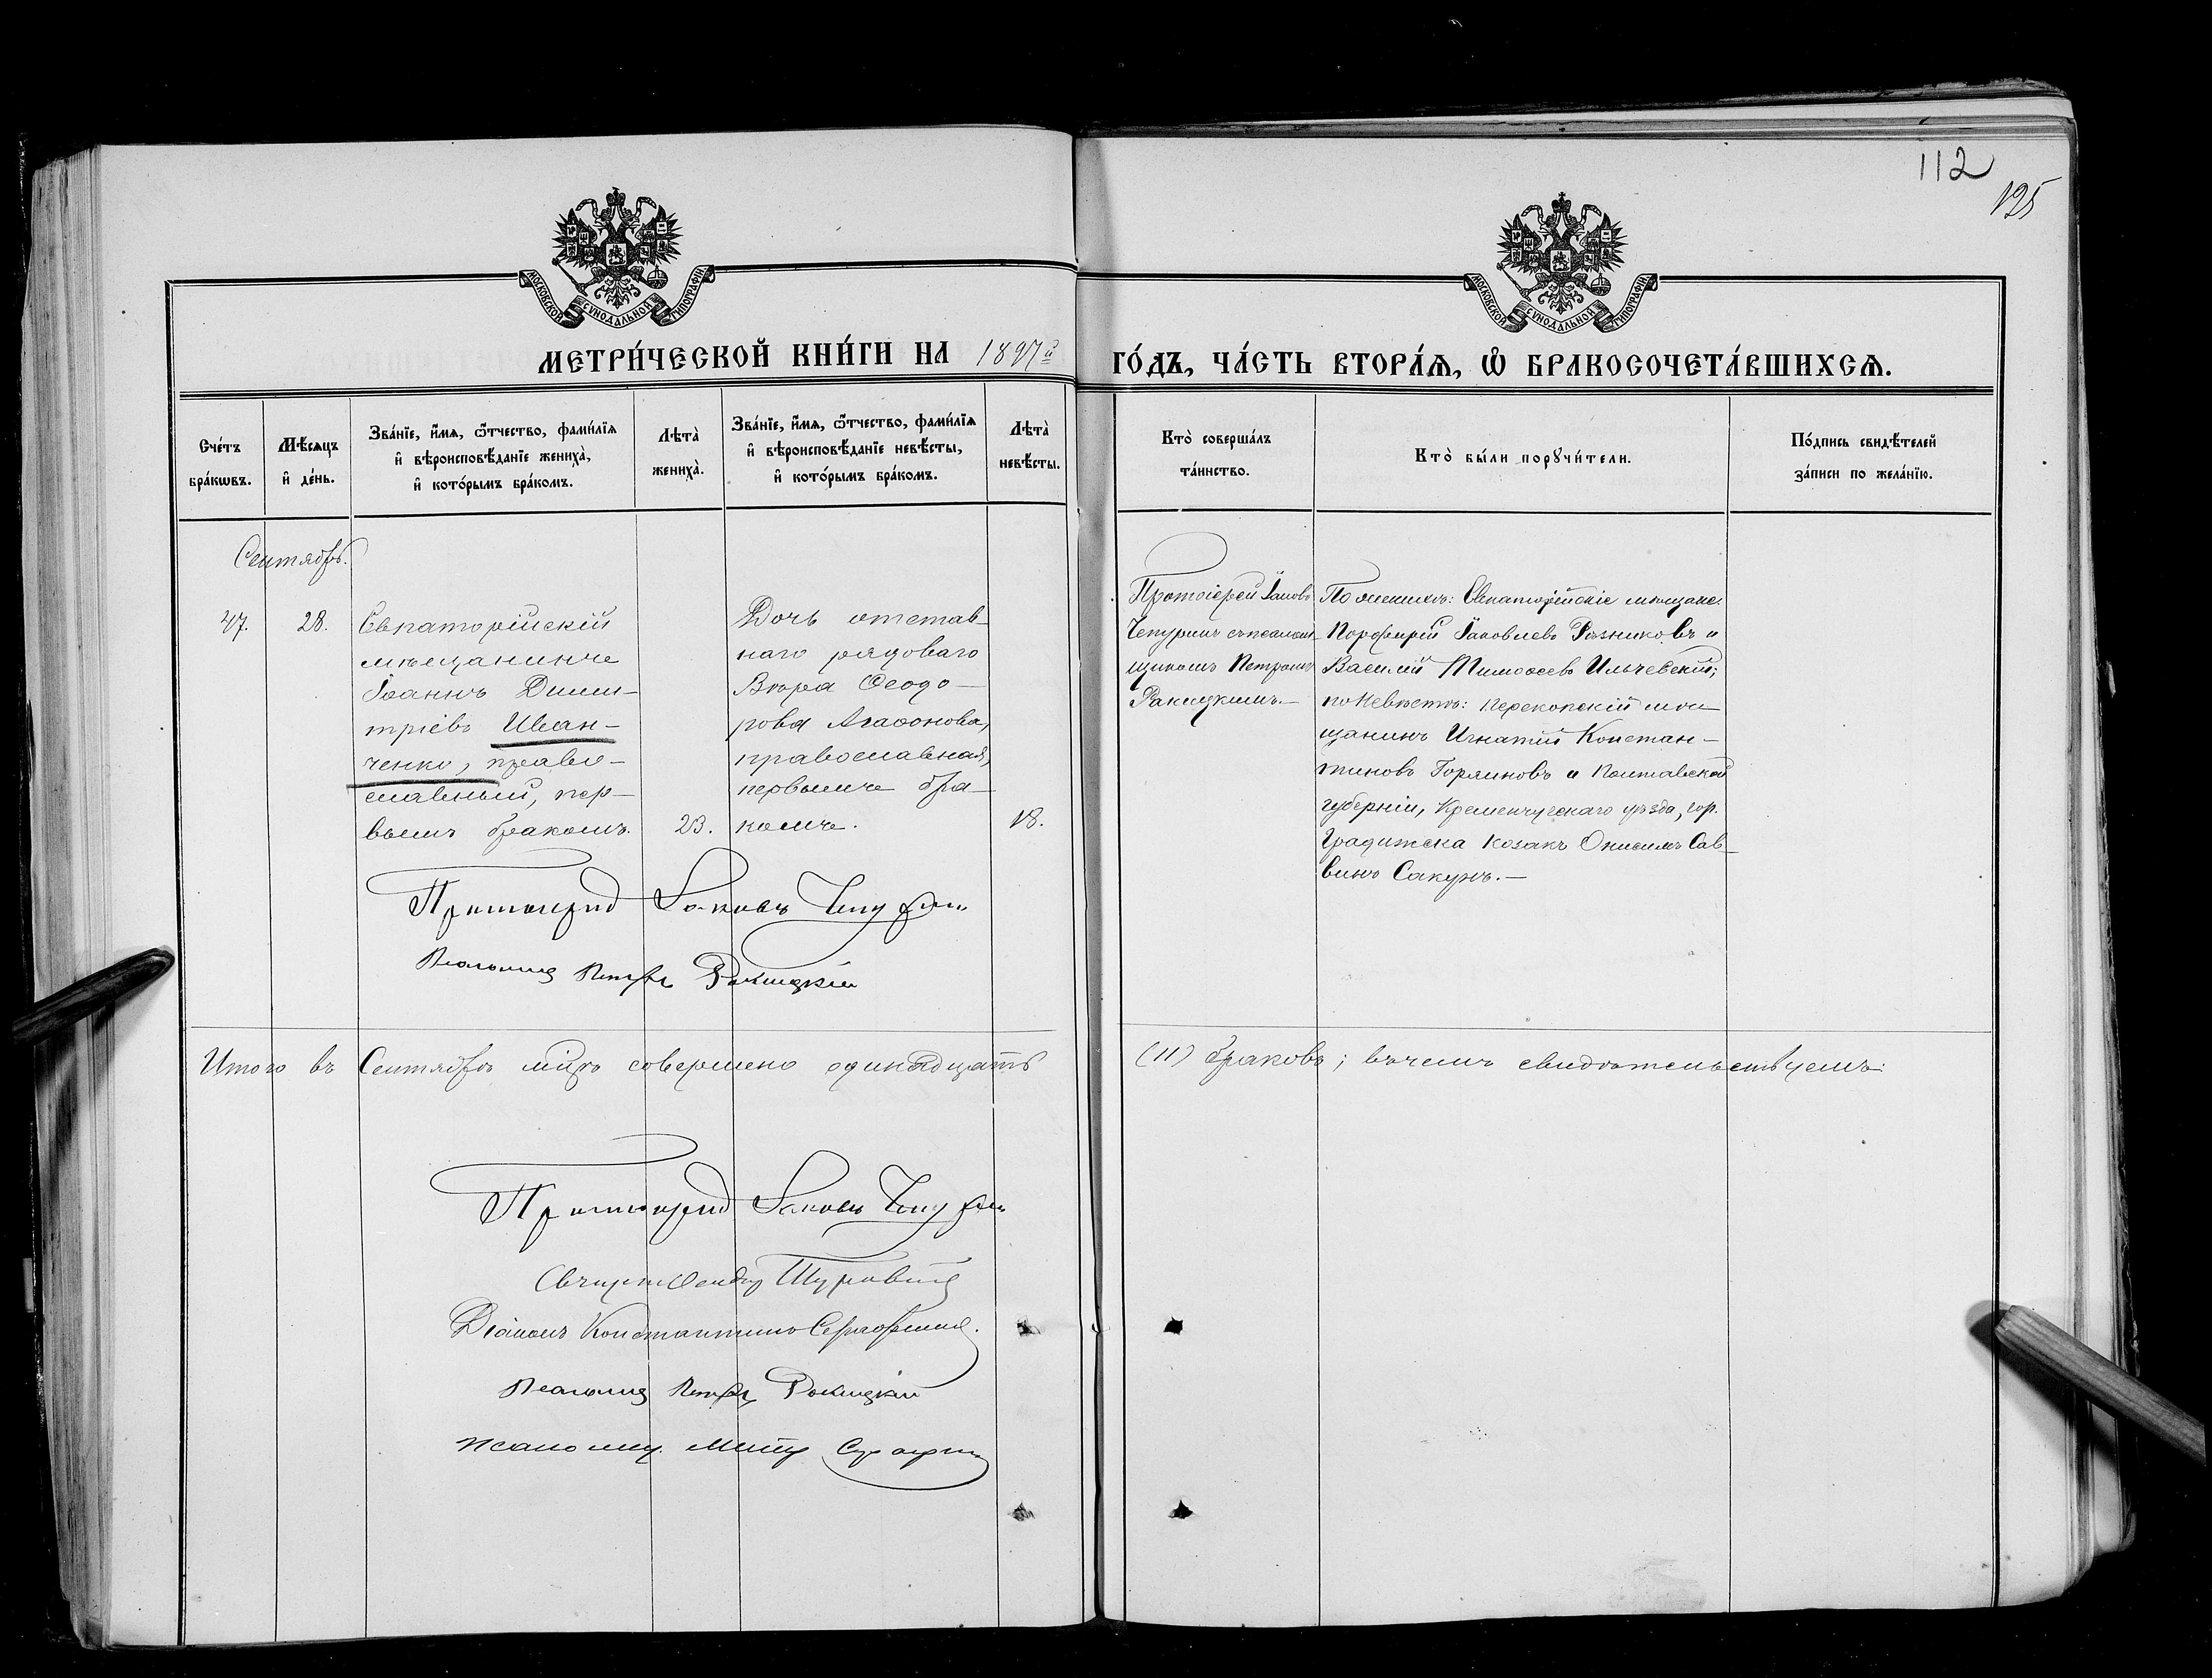 112
125
МОСКОВСКОЙ СѴНОДАЛЬНОЙ ТИПОГРАФІИ
МОСКОВСКОЙ СѴНОДАЛЬНОЙ ТИПОГРАФІИ
МЕТРИ́ЧЕСКОЙ КНИ́ГИ НА 1897й ГО́ДЪ, ЧА́СТЬ ВТОРА́Я, Ѡ҆ БРАКОСОЧЕТА́ВШИХСЯ.
Сче́тъ
бра́кѡвъ.
Мѣ́сяцъ
и҆ де́нь.
Зва́нїе, и҆́мя, ѻ҆́тчество, фами́лїя
и҆ вѣроисповѣ́данїе жениха̀,
и҆ кото́рымъ бра́комъ.
Лѣта̀
жениха̀.
Зва́нїе, и҆́мя, ѻ҆́тчество, фами́лїя
и҆ вѣроисповѣ́данїе невѣ́сты,
и҆ кото́рымъ бра́комъ.
Лѣта̀
невѣ́сты.
Кто̀ соверша́лъ
та́инство.
Кто̀ бы́ли порꙋчи́тели.
По́дпись свидѣ́телей
за́писи по жела́нїю.
Сентябрь.
47.
28.
Евпаторійскій
мѣщанинъ
Іоаннъ Дими-
тріевъ Иван-
ченко, право-
славный, пер-
вымъ бракомъ.
23.
Дочь отстав-
наго рядоваго
Вѣра Ѳеодо-
рова Агаѳонова,
православная,
первымъ бра-
комъ.
18.
Протоіерей Іаковъ
Чепуринъ съ псалом-
щикомъ Петромъ
Ракицкимъ.-
По женихѣ: Евпаторійскіе мѣщане:
Порфирій Іаковлевъ Рѣзниковъ и
Василій Тимоѳеевъ Ильчевскій;
по Невѣстѣ: Перекопскій мѣ-
щанинъ Игнатій Констан-
тиновъ Горяиновъ и Полтавской
губерніи, Кременчугскаго уѣзда, гор.
Градижска козакъ Онисимъ Сав-
винъ Сакунъ.-
Протоіерей Іаковъ Чепуринъ
Псаломщ Петръ Ракицкій
Итого въ Сентябрѣ мцѣ совершено одинадцать (11) браковъ; въ чемъ свидѣтельствуемъ:
Протоіерей Іаковъ Чепуринъ
Діаконъ Константинъ
Псаломщ Петръ Ракицкій
Псаломщ.